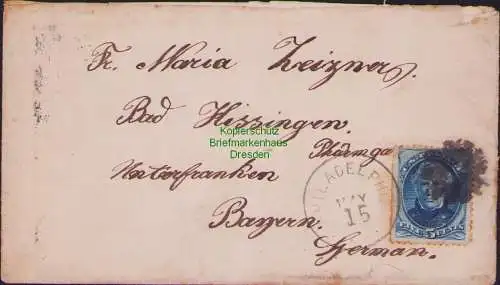 Fr. Maria Zeizner.
Bad Kissingen.
Kopierschutz
Briefmarkenhaus
Dresden
Unterfranken
Bayern.
German.
PHILADELPHIA
MAY
15